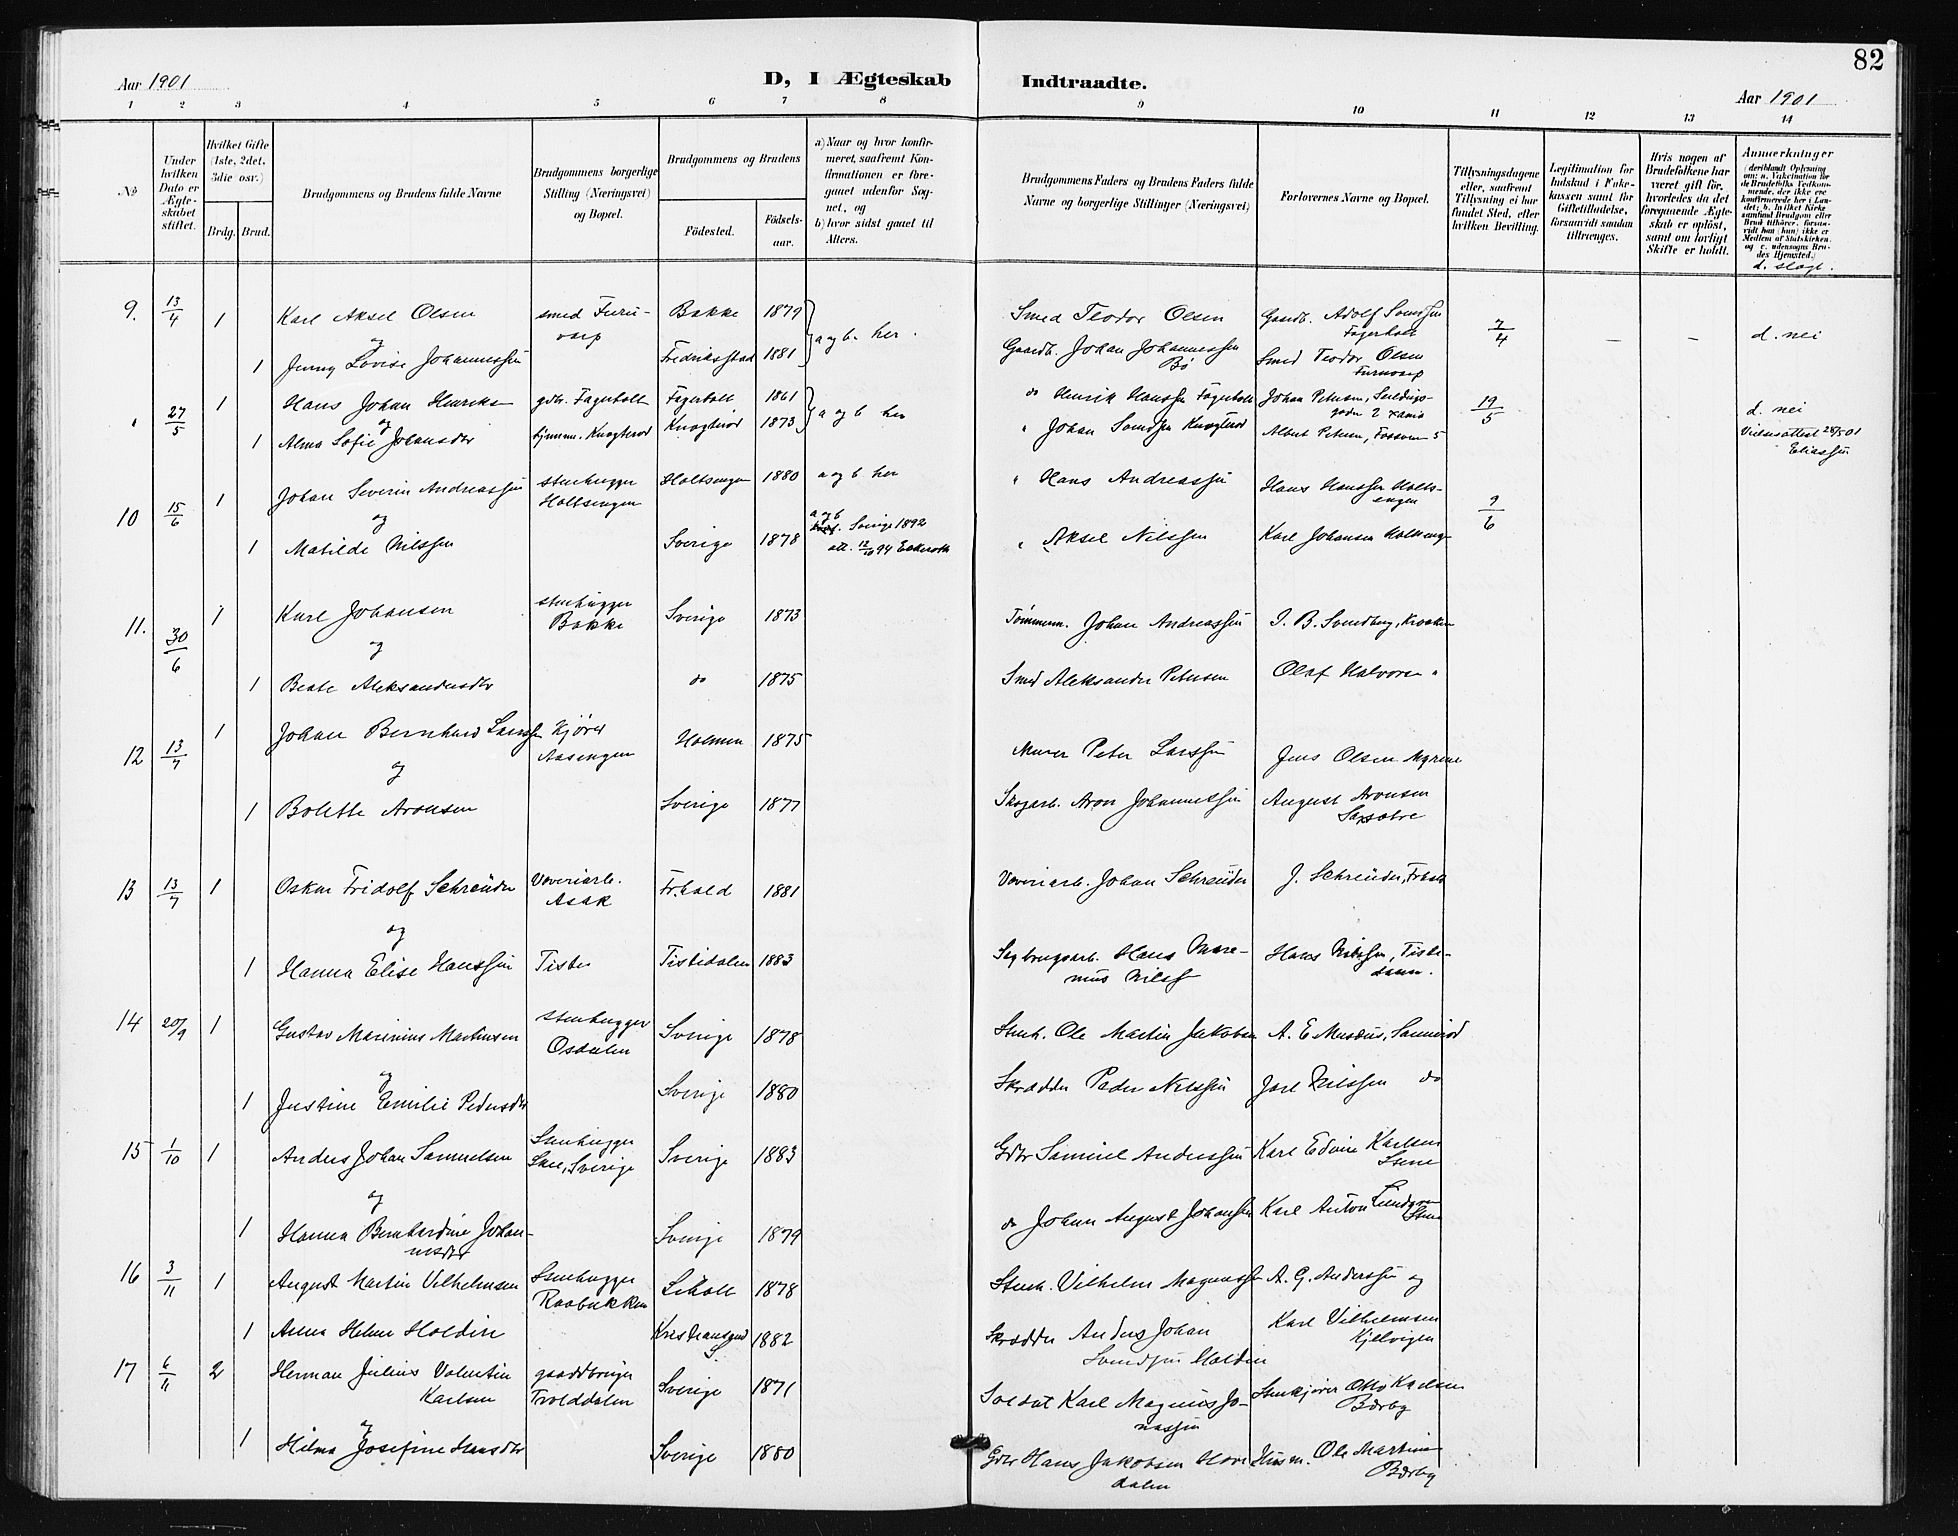 82
Aar 1901
D, I Ægteskab Indtraadte.
Aar 1901
1 2 3 4 5 6 7 8 9 10 11 12 13 14
No
Under hvilken Dato er Ægteskabet stiftet.
Hvilket Gifte (1ste, 2det, 3die osv.)
Brdg. Brud.
Brudgommens og Brudens fulde Navne
Brudgommens borgerlige Stilling (Næringsvei) og Bopæl.
Brudgommens og Brudens
Fødested.
Fødselsaar.
a) Naar og hvor konfirmeret, saafremt Konfirmationen er foregaaet udenfor Sognet, og
b) hvor sidst gaaet til Alters.
Brudgommens Faders og Brudens Faders fulde Navne og borgerlige Stillinger (Næringsvei)
Forlovernes Navne og Bopæl.
Tillysningsdagene eller, saafremt Tillysning ei har fundet Sted, efter hvilken Bevilling.
Legitimation for Indskud i Enkekassen samt for Giftetilladelse, forsaavidt saadan tiltrænges.
Hvis nogen af Brudefolkene har været gift før, hvorledes da det foregaaende Ægteskab er opløst, samt om lovligt Skifte er holdt.
Anmerkninger
d. slægt.
9. 13/4 1 Karl Aksel Olsen smed Furuvarp Bakke 1879 a og b. her. Smed Teodor Olsen Gaardb. Adolf Svendsen Fagerholt 7/4 – – d. nei
og
1 Jenny Lovise Johannessen Fredriksstad 1881 Gaardb. Johan Johannessen Bø Smed Teodor Olsen
" 27/5 1 Hans Johan Henriksen gdbr. Fagerholt Fagerholt 1861 a og b her do Henrik Hanssen Fagerholt Johan Petersen, 19/5 d. nei
og
1 Alma Sofie Johansdtr Knogterød 1873 " Johan Svendsen Knogterød Albert Petersen, 5 Vielsesattest 28/5 01 Eliassen
10 15/6 1 Johan Severin Andreassen stenhugger Holtsengen Holtsengen 1880 a og b her " Hans Andreassen Hans Hanssen Holtsengen 9/6
og
1 Matilde Nilssen Sverige 1878 a og b Sverige 1892 att. 12/10 94 " Aksel Nilssen Karl Johansen Holtsengen
11. 30/6 1 Karl Johansen stenhugger Bakke Sverige 1873 Tømmerm. Johan Andreassen I. B. Svendberg,
og
1 Beate Aleksandersdtr do 1875 Smed Aleksander Petersen Olaf Halvorsen "
12 13/7 1 Johan Bernhard Larssen Kjører Aasengen Holmen 1875 Murer Peter Larssen Jens Olsen Myrene
og
1 Bolette Aronsen Sverige 1877 Skogarb. Aron Johannessen August Aronsen
13 13/7 1 Oskar Fridolf Schreüder Væveriarb. Asak Fr.hald 1881 Væveriarb. Johan Schreüder J. Schreüder, Frhald
og
1 Hanna Elise Hanssen Tiste Tistedalen 1883 Sagbrugsarb. Hans Marenius Nilss Hans Nilssen, Tistedalen.
14 20/9 1 Gustav Marinius Martinsen stenhugger Osdalen Sverige 1878 Stenh. Ole Martin Jakobsen A. E. Musæus,
og
1 Justine Emilie Pedersdtr Sverige 1880 Skrædder Peder Nilssen Jarl Nilssen do
15 1/10 1 Anders Johan Samuelsen Stenhugger Sverige Sverige 1883 Gdbr Samuel Anderssen Karl Edvin Karlsen Stene
og
1 Hanna Bernhardine Johannesdtr Sverige 1879 do Johan August Johansen Karl Anton Lundgren Stene
16 3/11 1 August Martin Vilhelmsen Stenhugger Raabækken Liholt 1878 Stenh. Vilhelm Magnussen A. G. Anderssen og
1 Anna Helene Holdin Kristiansund 1882 Skrædder Anders Johan Svendsen Holdin Karl Vilhelmsen Kjelvigen
17 6/11 2 Herman Julius Valentin Karlsen gaardbruger Trolddalen Sverige 1871 Soldat Karl Magnus Jonassen Stenkjører Otto Karlsen Bærby
og
1 Hilma Josefine Hansdtr Sverige 1880 Gdbr Hans Jakobsen Hovedalen Husm. Ole Martin Bærby